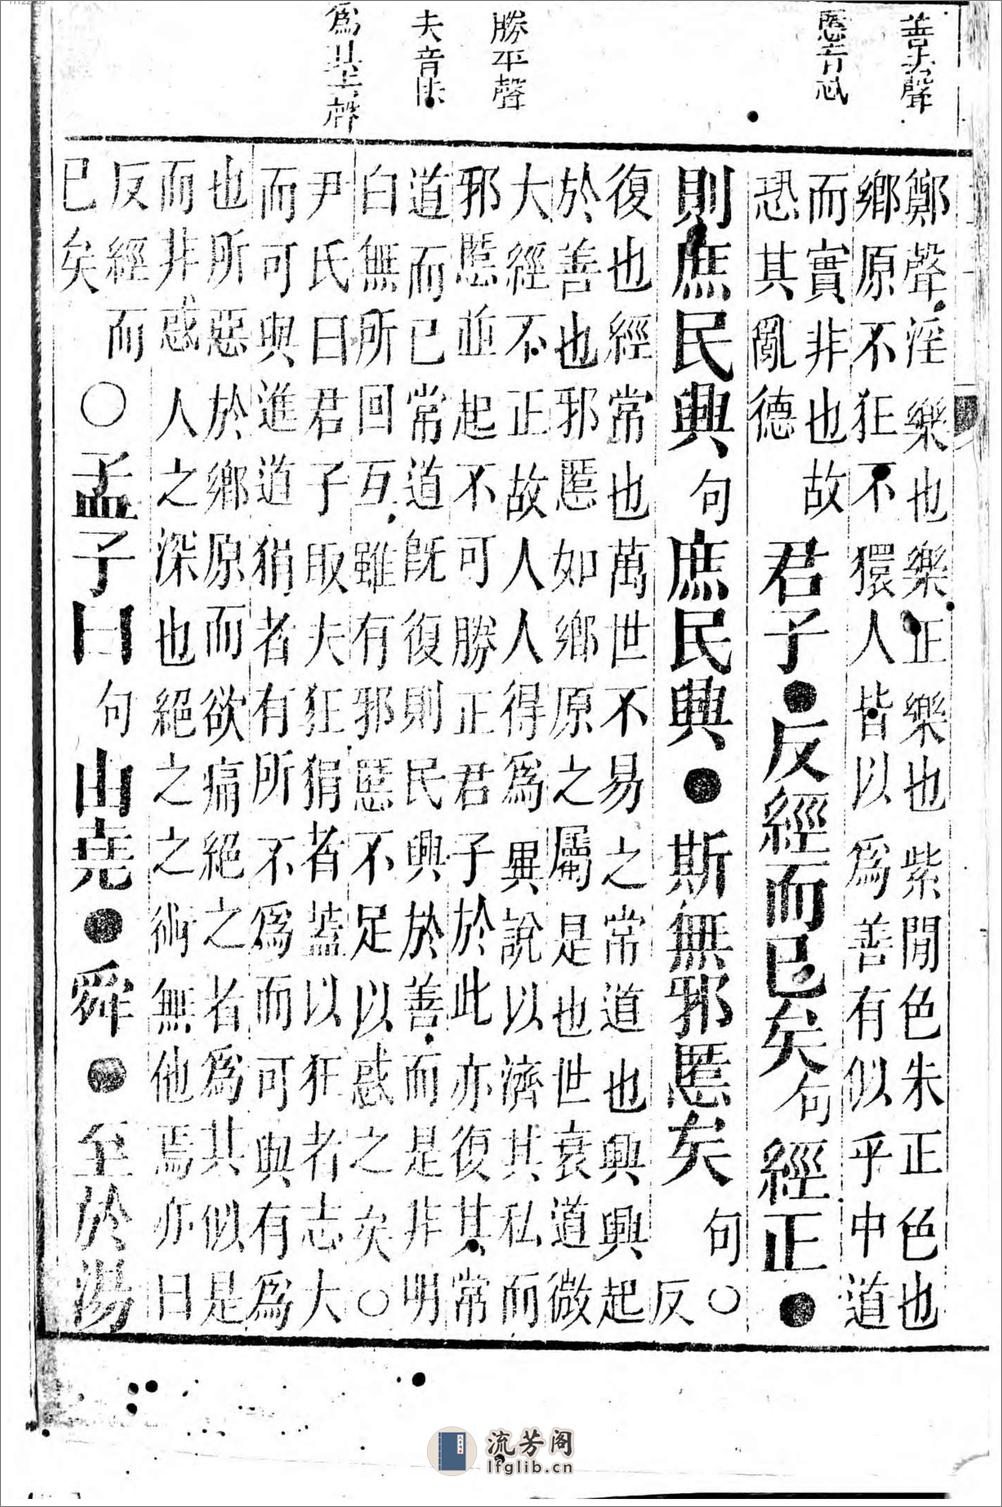 善去聲
慝音忒
勝平聲
夫音扶
鄭聲淫樂也樂正樂也紫閒色朱正色也
鄉原不狂不獧人皆以爲善有似乎中道
而實非也故
恐其亂德
君子●反經而已矣句經正●
則庶民興句庶民興●斯無邪慝矣句○
反
復也經常也萬世不易之常道也興興起
於善也邪慝如鄉原之屬是也世衰道微
大經不正故人人得爲異說以濟其私而
邪慝並起不可勝正君子於此亦復其常
道而已常道旣復則民興於善而是非明
白無所回互雖有邪慝不足以惑之矣○
尹氏曰君子取夫狂狷者蓋以狂者志大
而可與進道狷者有所不爲而可與有爲
也所惡於鄉原而欲痛絕之者爲其似是
而非惑人之深也絕之之術無他焉亦曰
反經而
已矣
○孟子曰句由堯●舜●至於湯
流芳阁
lfglib.cn